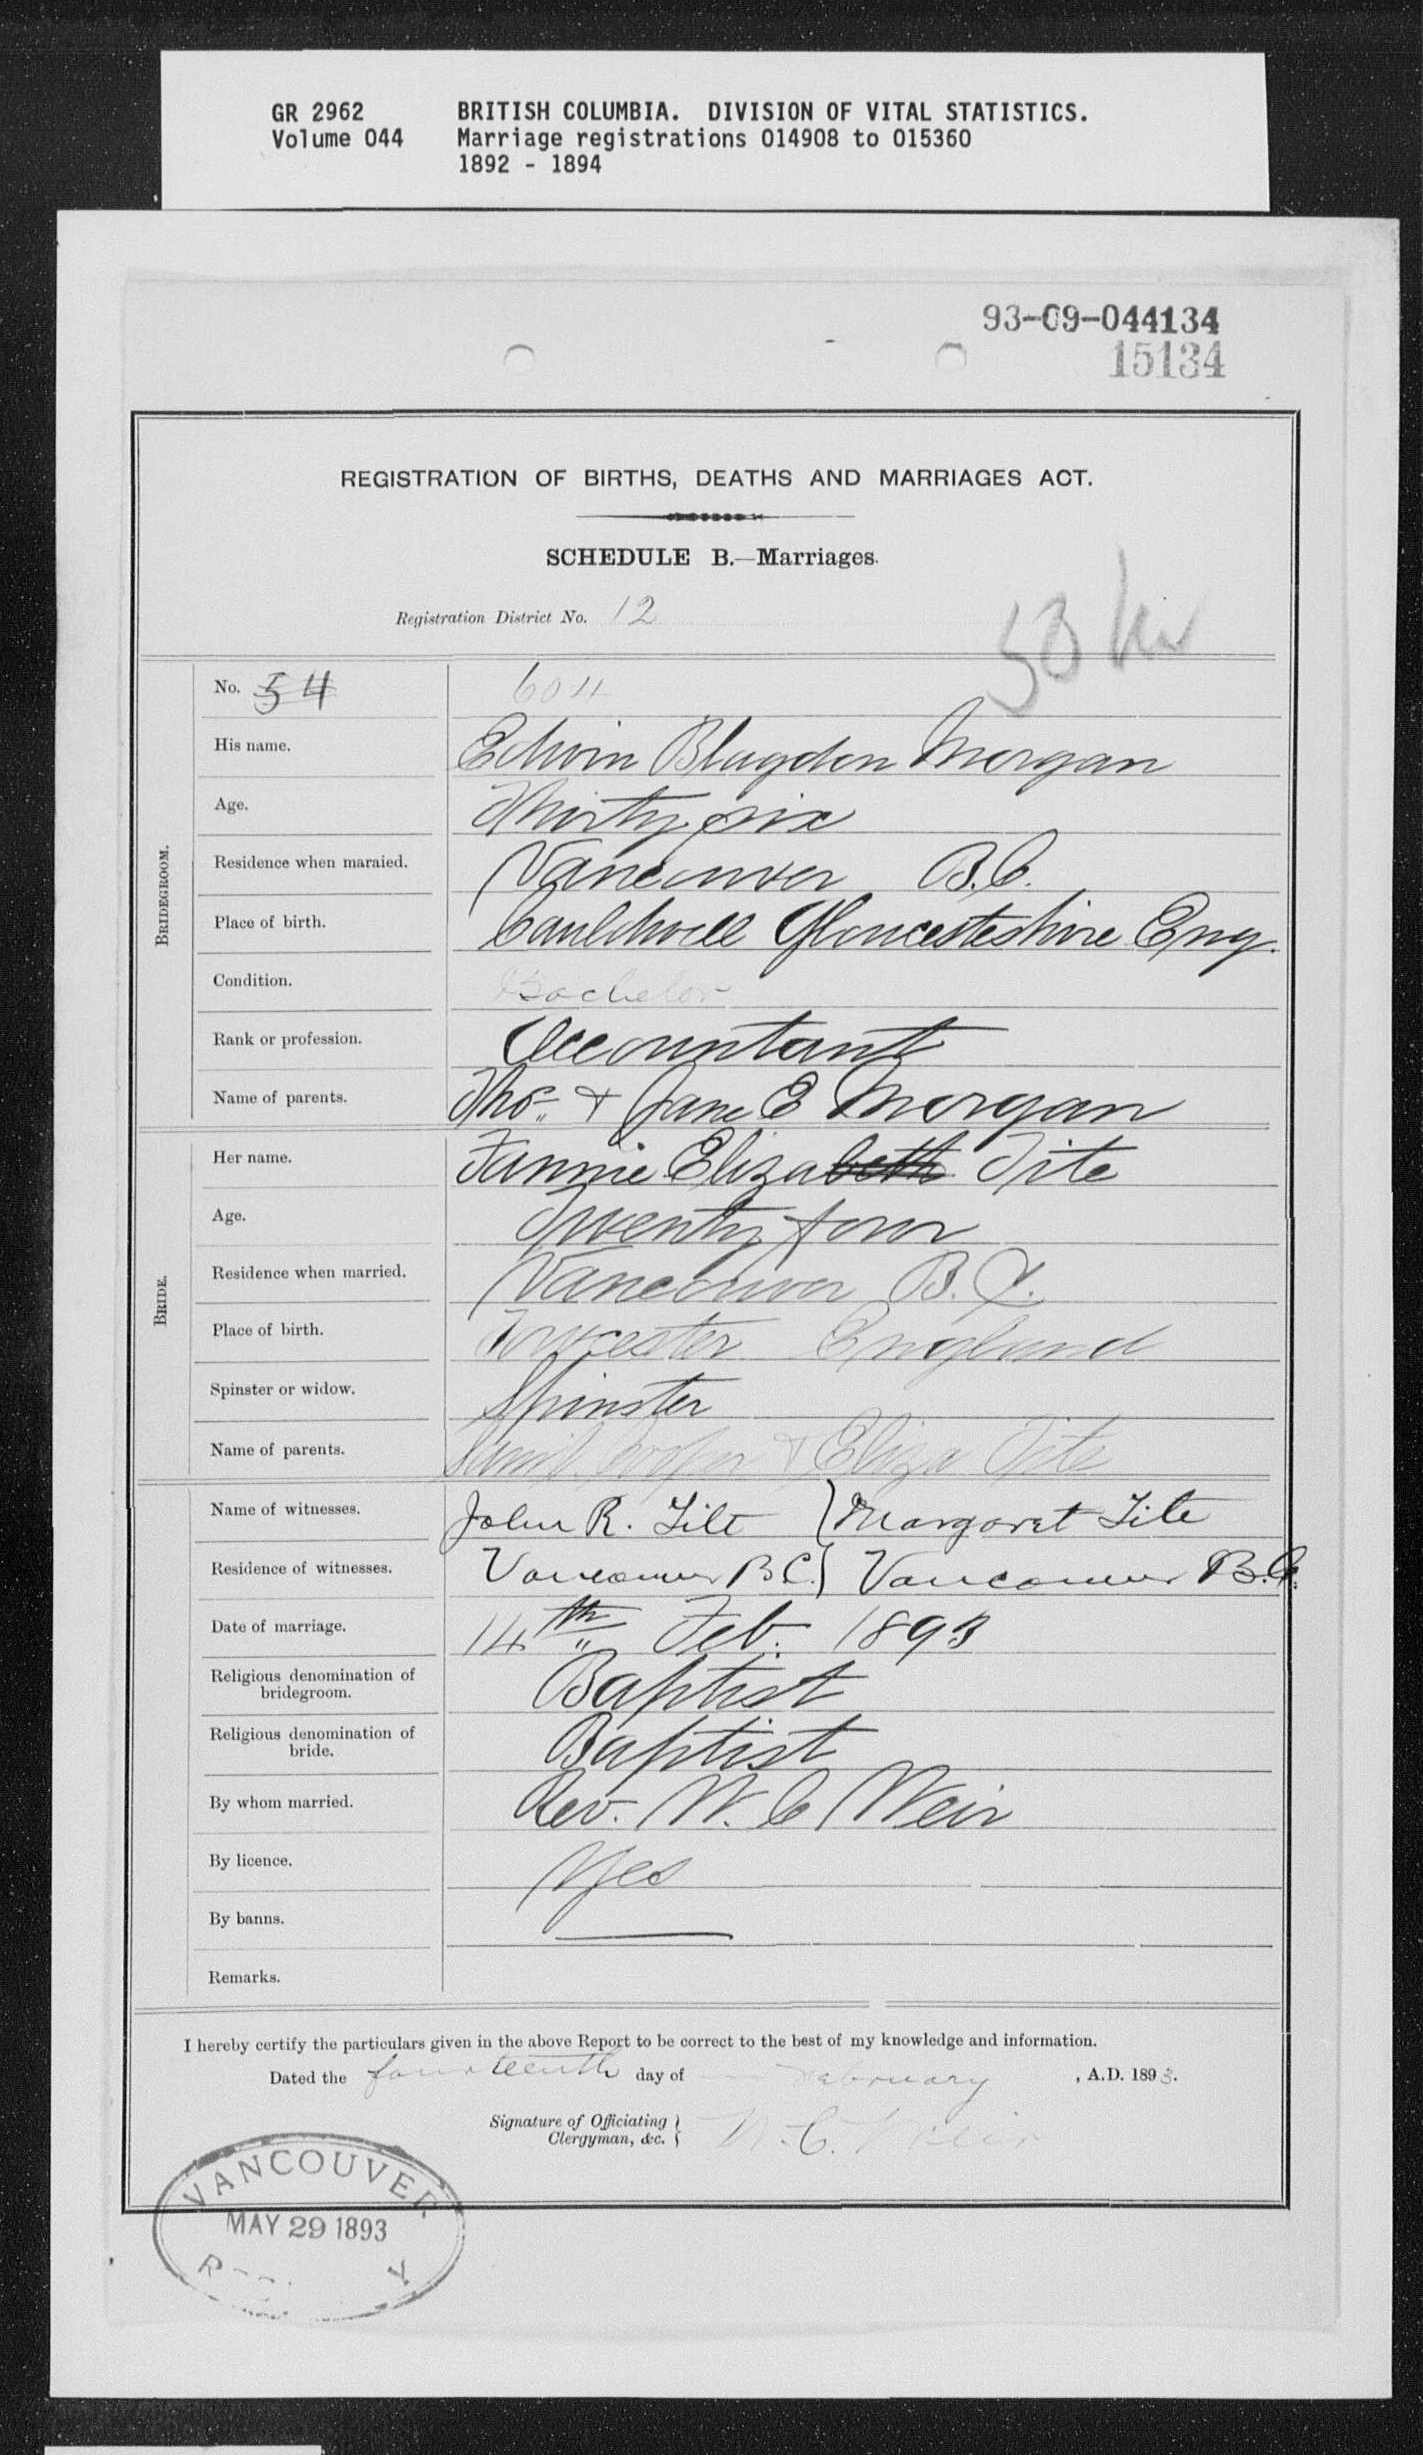 GR 2962 BRITISH COLUMBIA. DIVISION OF VITAL STATISTICS.
Volume 044 Marriage registrations 014908 to 015360
1892 - 1894
93-09-044134
15134
REGISTRATION OF BIRTHS, DEATHS AND MARRIAGES ACT.
SCHEDULE B.—Marriages.
Registration District No. 12
BRIDEGROOM.
No. 54
His name. Edwin Blagdon Morgan
Age. Thirty six
Residence when maraied. Vancouver B.C.
Place of birth. Gloucesteshire Eng.
Condition. Bachelor
Rank or profession. Accountant
Name of parents. Thos. & Jane E Morgan
BRIDE.
Her name. Fannie Elizabeth Tite
Age. Twenty four
Residence when married. Vancouver B.C.
Place of birth. Towcester England
Spinster or widow. Spinster
Name of parents. & Eliza Tite
Name of witnesses. John R. Tite } Margaret Tite
Residence of witnesses. Vancouver B.C. } Vancouver B.C.
Date of marriage. 14th Feb. 1893
Religious denomination of bridegroom. Baptist
Religious denomination of bride. Baptist
By whom married. Rev. W. C Weir
By licence. Yes
By banns.
Remarks.
I hereby certify the particulars given in the above Report to be correct to the best of my knowledge and information.
Dated the fourteenth day of February , A.D. 1893.
Signature of Officiating Clergyman, &c. } W. C. Weir
VANCOUVER
MAY 29 1893